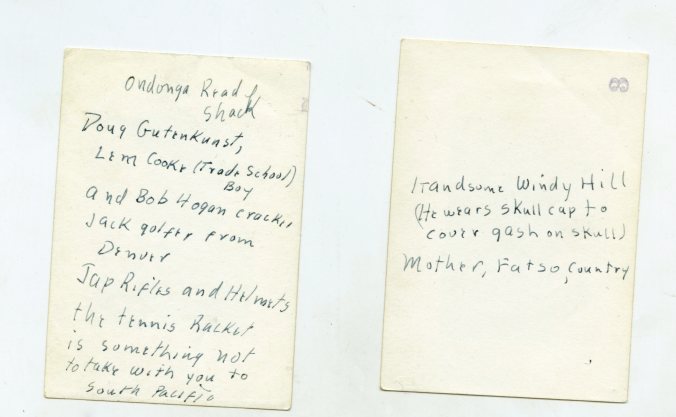 Ondonga Ready
Shack
Doug Gutenkunst,
Lem Cooke (Trade School)
Boy
and Bob Hogan cracker
Jack golfer from
Denver
Jap Rifles and Helmets
the tennis Racket
is something not
to take with you to
South Pacific
8
Handsome Windy Hill
(He wears skull cap to
cover gash on skull)
Mother, Fatso, Country